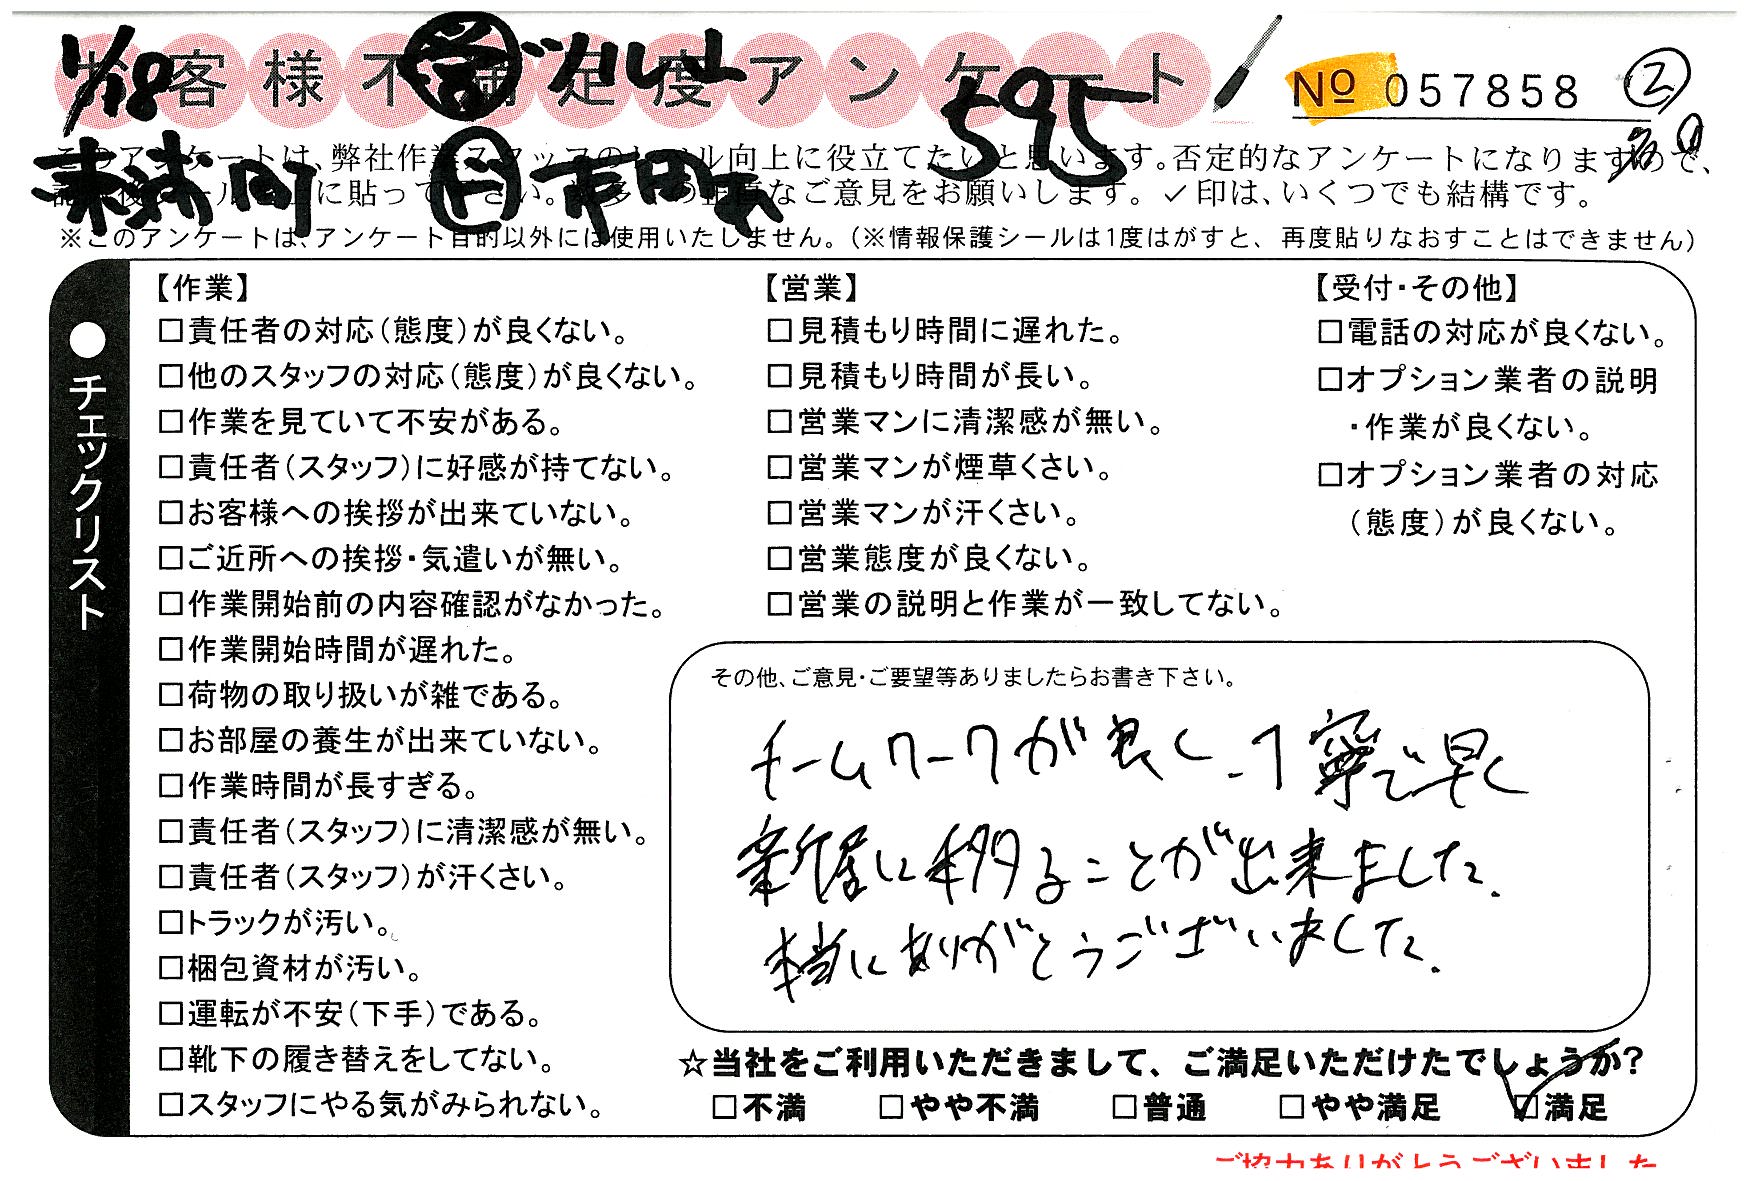 お客様不満足度アンケート
1/18
595
No 057858 ②
このアンケートは、弊社作業スタッフのレベル向上に役立てたいと思います。否定的なアンケートになりますので、
に貼って下さい。数多くの正直なご意見をお願いします。✓印は、いくつでも結構です。
※このアンケートは、アンケート目的以外には使用いたしません。(※情報保護シールは1度はがすと、再度貼りなおすことはできません)
●チェックリスト
【作業】
□責任者の対応(態度)が良くない。
□他のスタッフの対応(態度)が良くない。
□作業を見ていて不安がある。
□責任者(スタッフ)に好感が持てない。
□お客様への挨拶が出来ていない。
□ご近所への挨拶・気遣いが無い。
□作業開始前の内容確認がなかった。
□作業開始時間が遅れた。
□荷物の取り扱いが雑である。
□お部屋の養生が出来ていない。
□作業時間が長すぎる。
□責任者(スタッフ)に清潔感が無い。
□責任者(スタッフ)が汗くさい。
□トラックが汚い。
□梱包資材が汚い。
□運転が不安(下手)である。
□靴下の履き替えをしてない。
□スタッフにやる気がみられない。
【営業】
□見積もり時間に遅れた。
□見積もり時間が長い。
□営業マンに清潔感が無い。
□営業マンが煙草くさい。
□営業マンが汗くさい。
□営業態度が良くない。
□営業の説明と作業が一致してない。
【受付・その他】
□電話の対応が良くない。
□オプション業者の説明
・作業が良くない。
□オプション業者の対応
(態度)が良くない。
その他、ご意見・ご要望等ありましたらお書き下さい。
チームワークが良く、丁寧で早く
新居に移ることが出来ました。
本当にありがとうございました。
☆当社をご利用いただきまして、ご満足いただけたでしょうか?
□不満 □やや不満 □普通 □やや満足 ☑満足
ご協力ありがとうございました